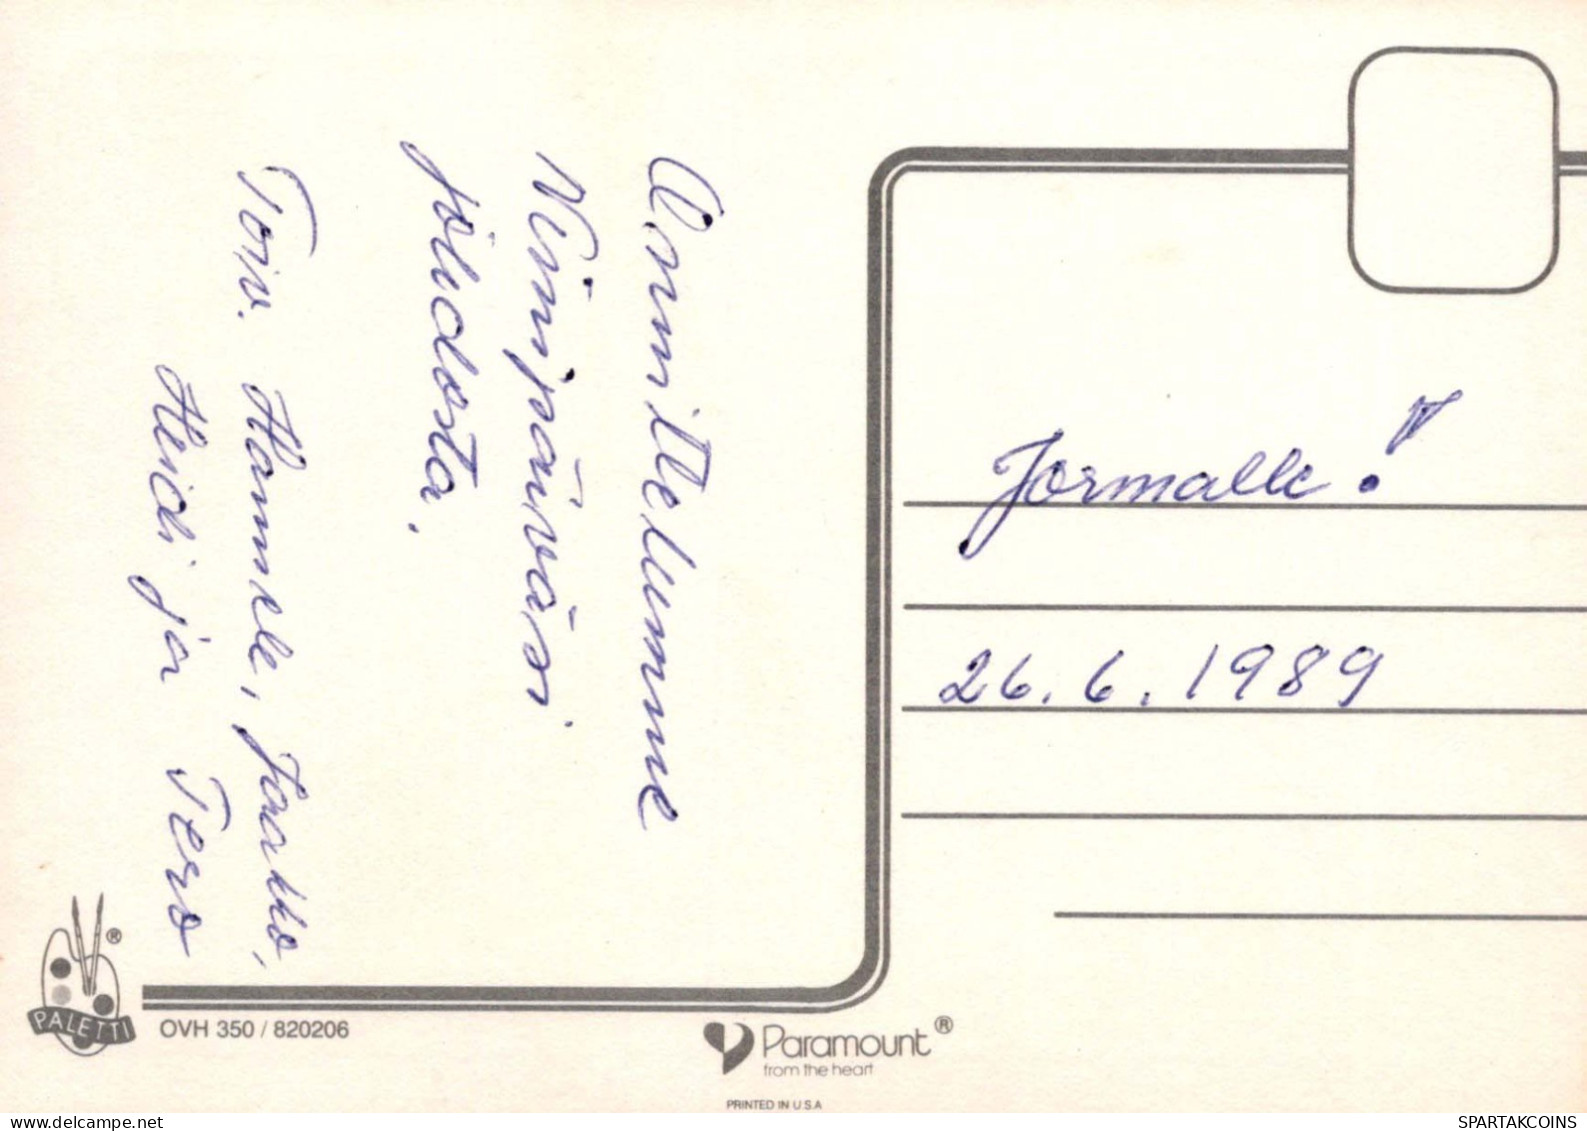 Onnittelumme
Nimipäiväsi
johdosta.
Toiv. Hannele, Jaakko,
Heidi ja Tero
Jormalle!
26.6.1989
PALETTI ®
OVH 350 / 820206
Paramount ®
from the heart
PRINTED IN U.S.A
delcampe.net
SPARTAKCOINS